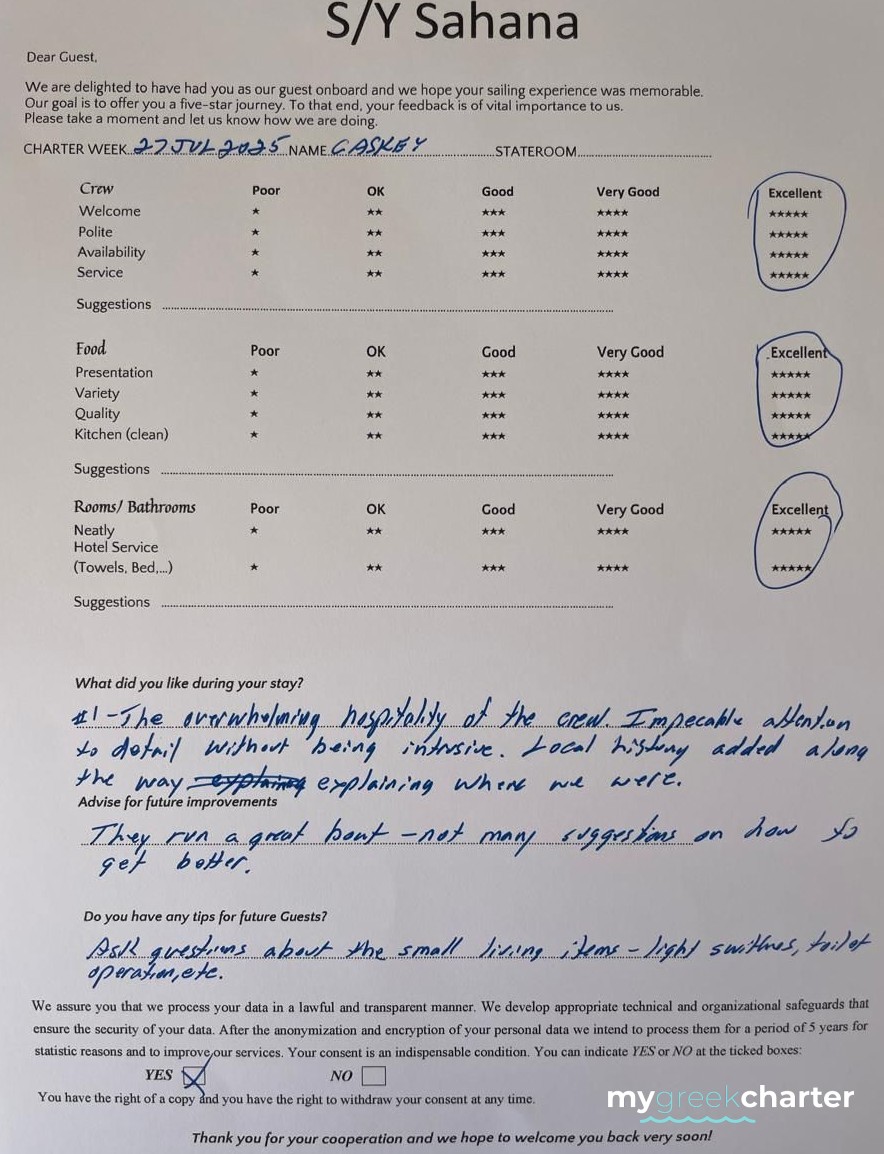 S/Y Sahana
Dear Guest,
We are delighted to have had you as our guest onboard and we hope your sailing experience was memorable.
Our goal is to offer you a five-star journey. To that end, your feedback is of vital importance to us.
Please take a moment and let us know how we are doing.
CHARTER WEEK 27 JUL 2025 NAME CASKEY STATEROOM
Crew Poor OK Good Very Good Excellent
Welcome ★ ★★ ★★★ ★★★★ ★★★★★
Polite ★ ★★ ★★★ ★★★★ ★★★★★
Availability ★ ★★ ★★★ ★★★★ ★★★★★
Service ★ ★★ ★★★ ★★★★ ★★★★★
Suggestions
Food Poor OK Good Very Good Excellent
Presentation ★ ★★ ★★★ ★★★★ ★★★★★
Variety ★ ★★ ★★★ ★★★★ ★★★★★
Quality ★ ★★ ★★★ ★★★★ ★★★★★
Kitchen (clean) ★ ★★ ★★★ ★★★★ ★★★★★
Suggestions
Rooms/ Bathrooms Poor OK Good Very Good Excellent
Neatly ★ ★★ ★★★ ★★★★ ★★★★★
Hotel Service
(Towels, Bed,...) ★ ★★ ★★★ ★★★★ ★★★★★
Suggestions
What did you like during your stay?
#1 - The overwhelming hospitality of the crew. Impecable attention
to detail without being intrusive. Local history added along
the way explaining explaining where we were.
Advise for future improvements
They run a great boat - not many suggestions on how to
get better.
Do you have any tips for future Guests?
Ask questions about the small living items - light swithes, toilet
operation, etc.
We assure you that we process your data in a lawful and transparent manner. We develop appropriate technical and organizational safeguards that
ensure the security of your data. After the anonymization and encryption of your personal data we intend to process them for a period of 5 years for
statistic reasons and to improve our services. Your consent is an indispensable condition. You can indicate YES or NO at the ticked boxes:
YES NO
You have the right of a copy and you have the right to withdraw your consent at any time.
mygreekcharter
Thank you for your cooperation and we hope to welcome you back very soon!